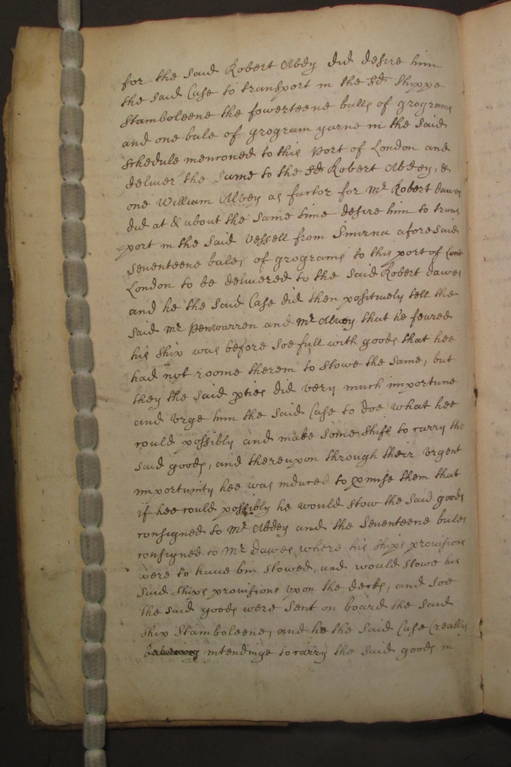 for the said Robert Abdy did desire him
the said Case to transport in the sd shippe
Stamboleene the fowerteene bales of grograms
and one bale of grogram yarne in the said
schedule menconed to this Port of London and
deliver the same to the sd Robert Abdy, &
one William Abdy as factor for Mr Robert Dawes
did at & about the same time desire him to trans
port in the said Vessell from Smirna aforesaid
seventeene bales of grograms to this port of
London to be delivered to the said Robert dawes
and he the said Case did then positively tell the
said Mr Penwarren and Mr Abdy that he feared
his ship was before soe full with goods that hee
had not roome therein to stowe the same, but
they the said pties did very much importune
and vrge him the said Case to doe what hee
could possibly and make some shift to carry the
said goods, and thereupon through their vrgent
importunity hee was induced to pmise them that
if hee could possibly he would stow the said goods
consigned to Mr Abdey and the seventeene bales
consigned to Mr Dawes, where his ships provisions
were to haue bin stowed, and would stowe his
said ships provisions vpon the decks, and soe
the said goods were sent on board the said
ship Stamboleene, and he the said Case (really
intendinge to carry the said goods in